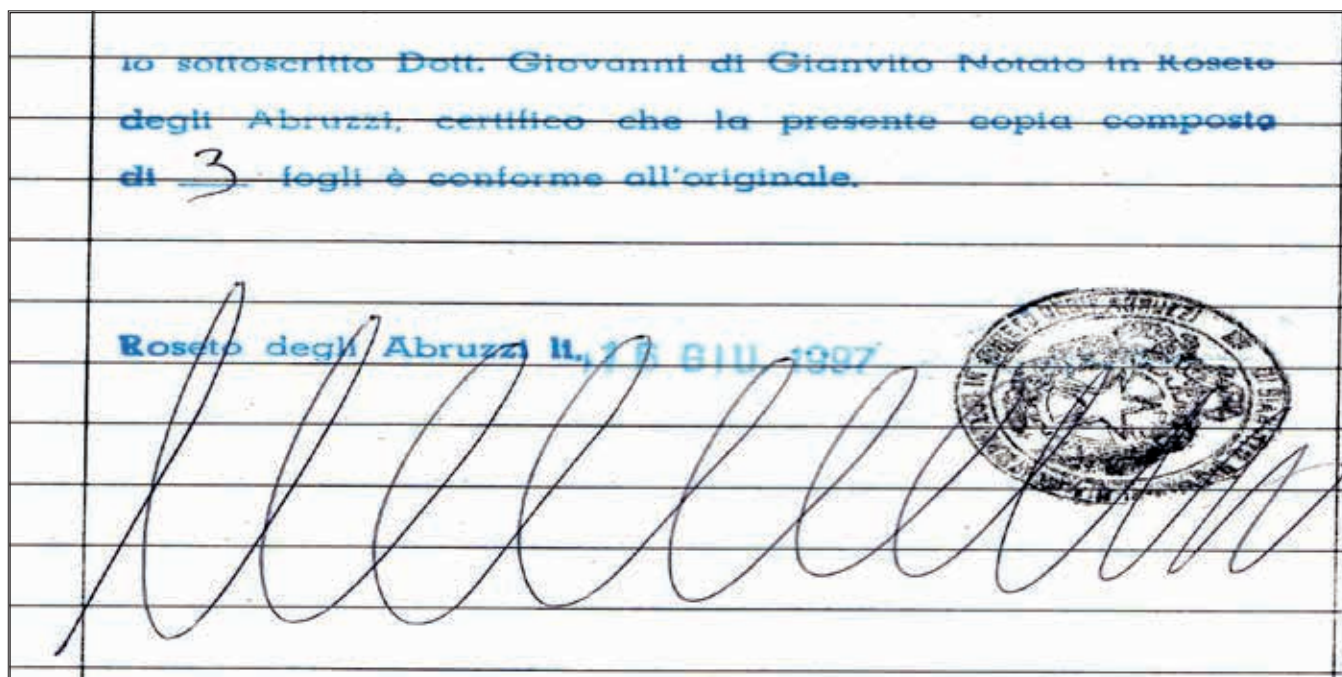 Io sottoscritto Dott. Giovanni di Gianvito Notaio in Roseto
degli Abruzzi, certifico che la presente copia composta
di 3 fogli è conforme all'originale.
Roseto degli Abruzzi li, 16 GIU. 1997